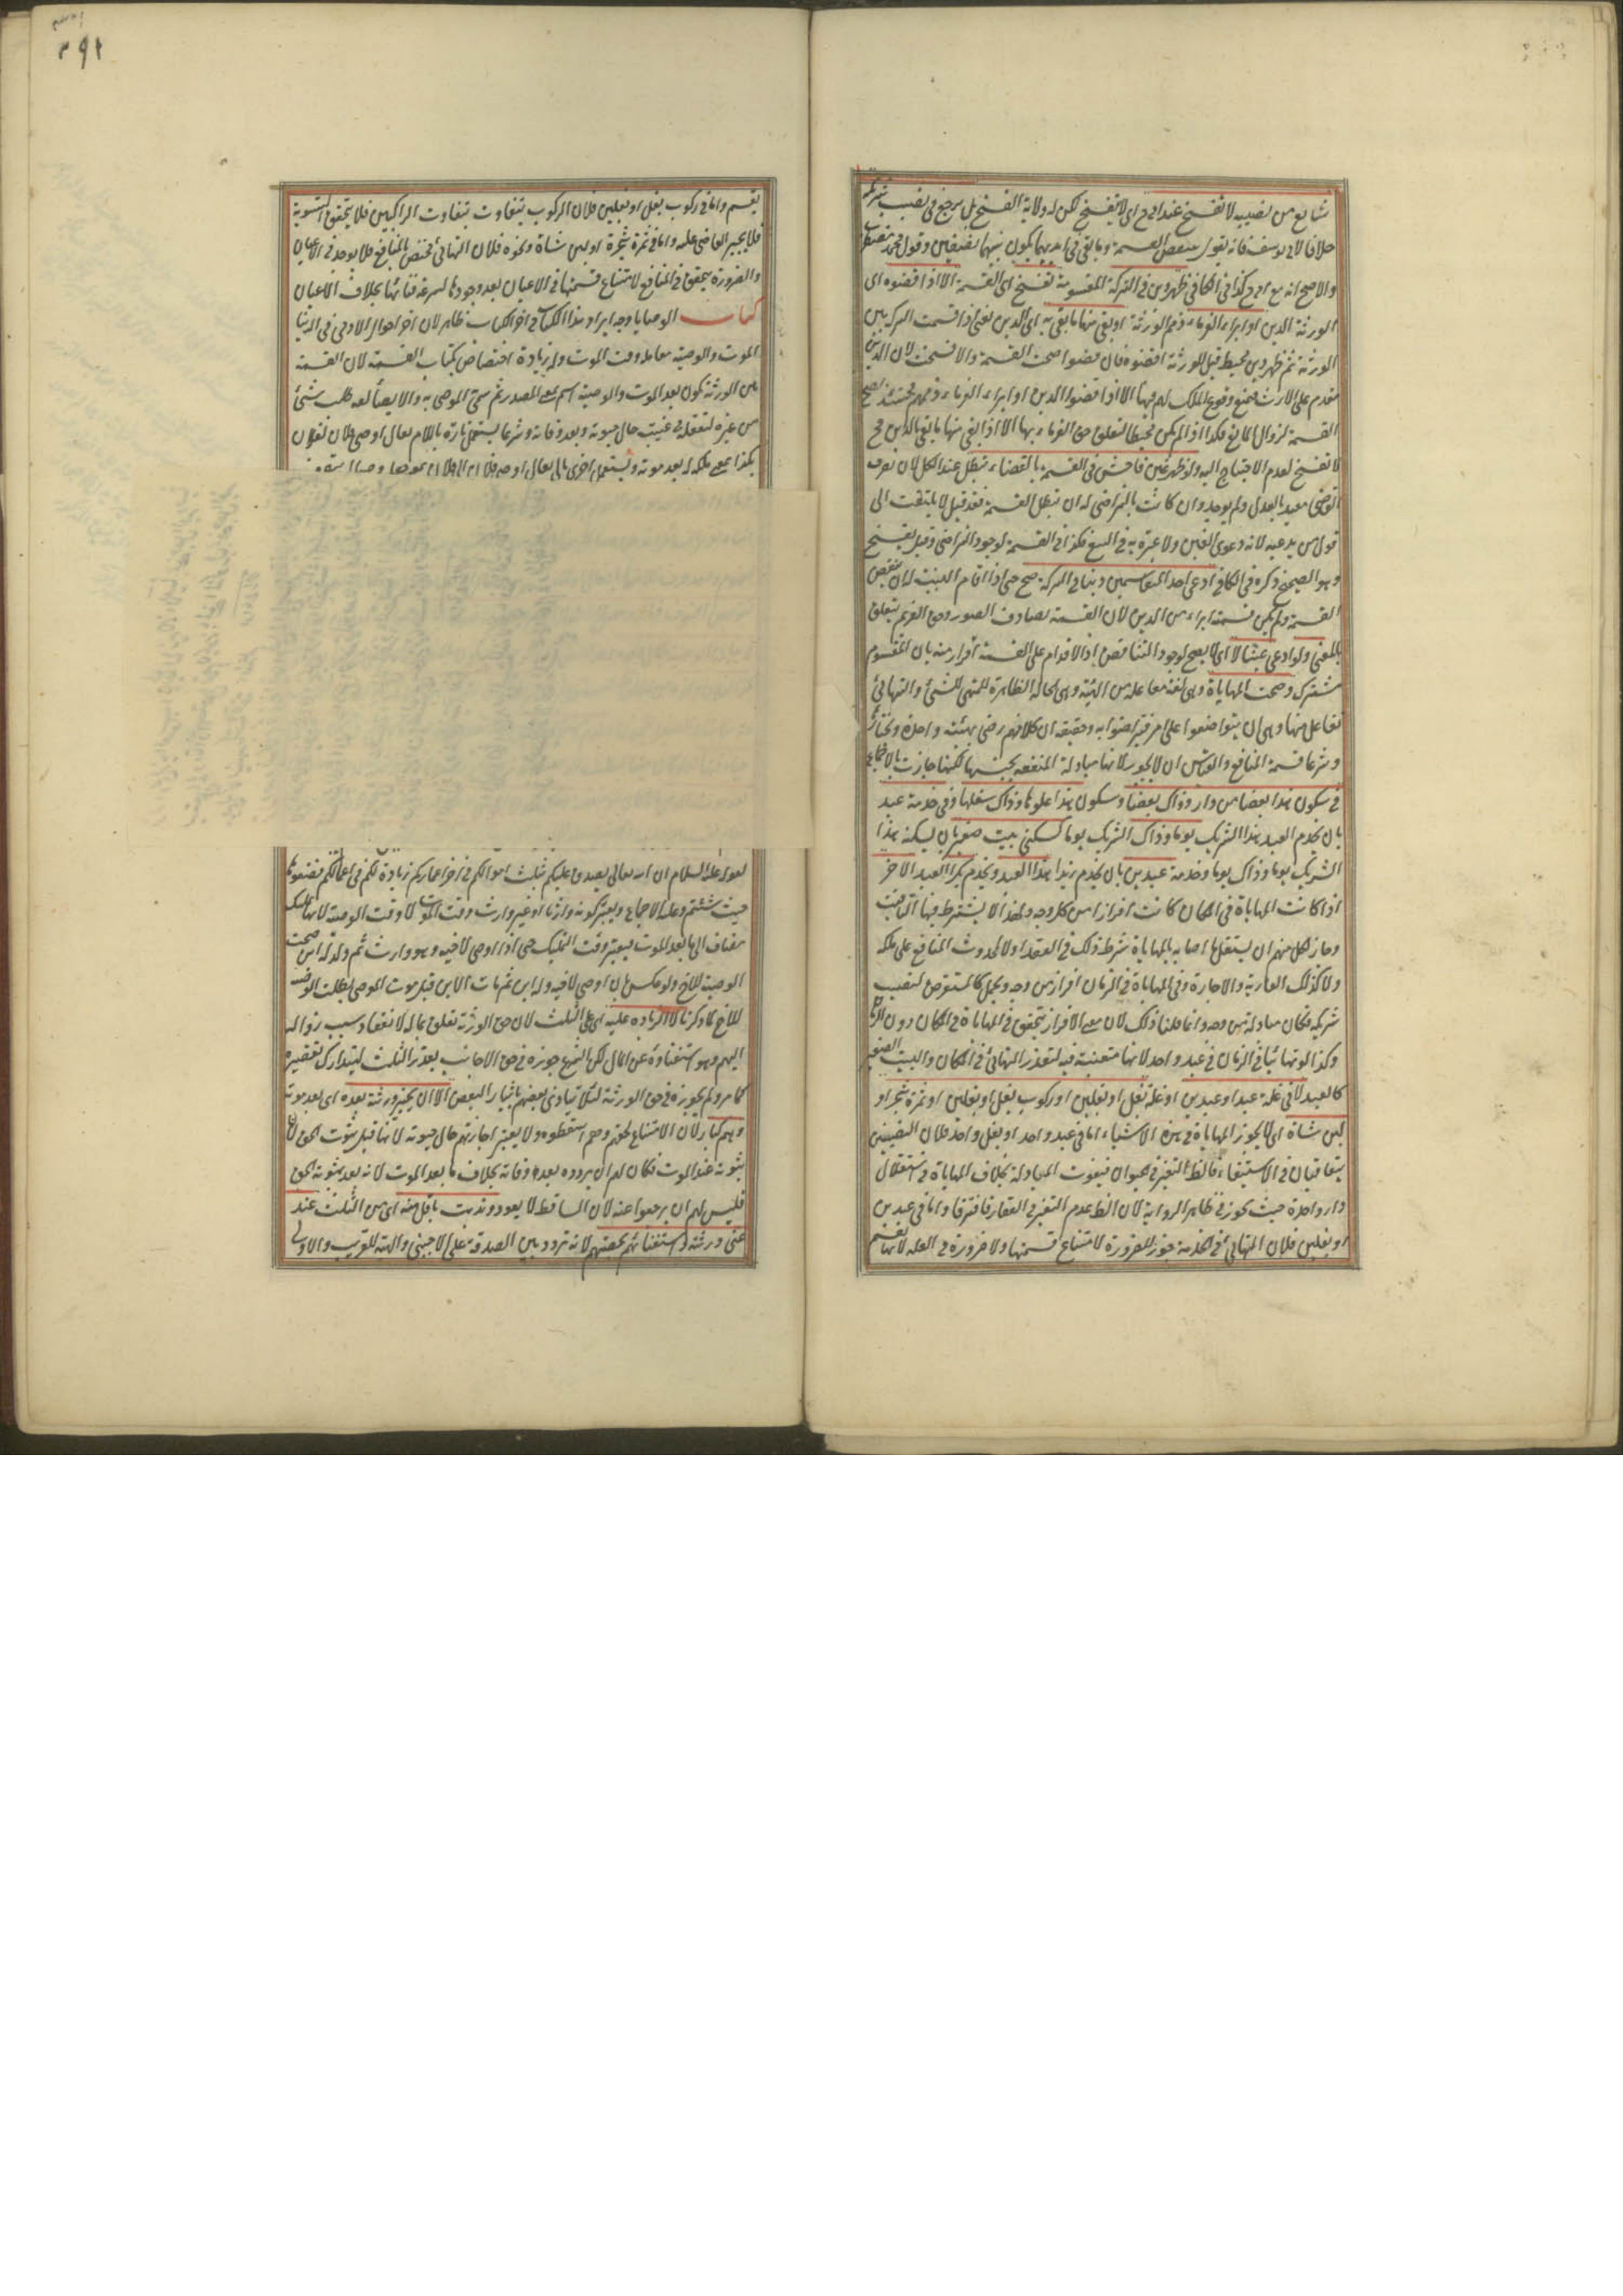 شايع من نصيبه لا تفسخ عند ابى ح اى لا يفسخ لكن له ولاية الفسخ بل يرجع فى نصيب شريكه
خلافا لابى يوسف فانه يقول ينقض القسمة وما بقى فى ايديهما يكون بينهما نصفين وقول محمد مضطرب
والاصح انه مع ابى ح كذا فى الكافى ظهر دين فى التركة المقسومة تفسخ اى القسمة الا اذا قضوه اى
الورثة الدين او ابراء الغرماء ذمم الورثة او بقى منها ما بقى به اى الدين يعنى اذا قسمت التركة بين
الورثة ثم ظهر دين محيط قيل للورثة اقضوه فان قضوا صحت القسمة والا فسخت لان الدين
مقدم على الارث فيمنع وقوع الملك لهم فيها الا اذا قضوا الدين او ابراء الغرماء ذممهم فحينئذ تصح
القسمة لزوال المانع فكذا اذا لم يكن محيطا لتعلق حق الغرماء بها الا اذا بقى منها ما بقى بالدين فح
لا تفسخ لعدم الاحتياج اليه ولو ظهر غبن فاحش فى القسمة بالقضاء تبطل عند الكل لان تصرف
القاضى مقيد بالعدل ولم يوجد وان كانت بالتراضى له ان تبطل القسمة فقد قيل لا يلتفت الى
قول من يدعيه لانه دعوى الغبن ولا عبرة به فى البيع فكذا فى القسمة لوجود التراضى وقيل يفسخ
وهو الصحيح ذكره فى الكافى ادعى احد المتقاسمين دينا فى التركة صح حتى اذا اقام البينة له ان ينقض
القسمة ولم يكن قسمته ابراء من الدين لان القسمة تصادف الصورة وحق الغريم يتعلق
بالمعنى ولو ادعى عينا لا اى لا يصح لوجود التناقض اذ الاقدام على القسمة اقرار منه بان المقسوم
مشترك وصحت المهاياة وهى لغة مفاعلة من الهيئة وهى الحالة الظاهرة للمتهيئ للشئ والتهايئ
تفاعل منها وهى ان يتواضعوا على امر فيتراضوا به وحقيقته ان كلا منهم رضى بهيئة واحدة ويختار
وشرعا قسمة المنافع والقياس ان لا يجوز لانها مبادلة المنفعة بجنسها لكنها جازت بالاجماع
فى سكون هذا بعضا من دار وذاك بعضا وسكون هذا علوها وذاك سفلها وفى خدمة عبد
بان يخدم العبد هذا الشريك يوما وذاك الشريك يوما كسكنى بيت صغير بان يسكنه هذا
الشريك يوما وذاك يوما وخدمة عبدين بان يخدم زيدا هذا العبد ويخدم بكرا العبد الاخر
اذا كانت المهاياة فى المكان كانت افرازا من كل وجه ولهذا لا يشترط فيها التاقيت
وجاز لكل منهم ان يستغل ما اصابه بالمهاياة شرط ذلك فى العقد اولا لحدوث المنافع على ملكه
ولا كذلك العارية والاجارة وفى المهاياة فى الزمان افراز من وجه ويجعل كالمستقرض لنصيب
شريكه فكان مبادلة من وجه وانما قلنا ذلك لان معنى الافراز يتحقق فى المهاياة فى المكان دون الزمان
وكذا لو تهايئا فى الزمان فى عبد واحد لانها متعينة فيه لتعذر التهايئ فى المكان والبيت الصغير
كالعبد لا فى غلة عبد او عبدين او غلة بغل او بغلين او ركوب بغل او بغلين او ثمرة شجر او
لبن شاة اى لا يجوز المهاياة فى هذه الاشياء اما فى عبد واحد او بغل واحد فلان النصيبين
يتعاقبان فى الاستيفاء فالظ التغير فى الحيوان فيفوت المبادلة بخلاف المهاياة فى استغلال
دار واحدة حيث يجوز فى ظاهر الرواية لان الظ عدم التغير فى العقار فافترقا واما فى عبدين
او بغلين فلان التهايئ فى الخدمة جوز للضرورة لامتناع قسمتها ولا ضرورة فى الغلة لانها تقسم
٣٩٢
يقسم واما فى ركوب بغل او بغلين فلان الركوب يتفاوت بتفاوت الراكبين فلا يتحقق التسوية
فلا يجبر القاضى عليه واما فى ثمرة شجرة او لبن شاة ونحوه فلان التهايئ مختص بالمنافع فلا يوجد فى الاعيان
والضرورة يتحقق فى المنافع لامتناع قسمتها فى الاعيان بعد وجودها لسرعة فنائها بخلاف الاعيان
كتاب الوصايا وجه ايراد هذا الكتاب فى اخر الكتاب ظاهر لان اخر احوال الادمى فى الدنيا
الموت والوصية معاملة وقت الموت وله زيادة اختصاص بكتاب القسمة لان القسمة
بين الورثة تكون بعد الموت والوصية اسم بمعنى المصدر ثم سمى الموصى به والايصا لغة طلب شئ
من غيره ليفعله فى غيبته حال حيوته وبعد وفاته وشرعا يستعمل تارة باللام يقال اوصى فلان لفلان
بكذا بمعنى ملكه له بعد موته ويستعمل اخرى بالى يقال اوصى فلان الى فلان
لقوله عليه السلام ان الله تعالى تصدق عليكم بثلث اموالكم فى اخر اعماركم زيادة لكم فى اعمالكم فضعوها
حيث شئتم وعليه الاجماع ويعتبر كونه وارثا او غير وارث وقت الموت لا وقت الوصية لانها تمليك
مضاف الى ما بعد الموت فيعتبر وقت التمليك حتى اذا اوصى لاخيه وهو وارث ثم ولد له ابن صحت
الوصية للاخ ولو عكس بان اوصى لاخيه وله ابن ثم مات الابن قبل موت الموصى بطلت الوصية
للاخ لما ذكرنا لا الزيادة عليه اى على الثلث لان حق الورثة تعلق بماله لانعقاد سبب زواله
اليهم وهو استغناؤه عن المال لكن الشرع جوزه فى حق الاجانب بقدر الثلث ليتدارك تقصيره
كما مر ولم يجوزه فى حق الورثة لئلا يتاذى بعضهم بايثار البعض الا ان يجيز ورثته بعده اى بعد موته
وهم كبار لان الامتناع لحقهم وهم اسقطوه ولا يعتبر اجازتهم حال حيوته لانها قبل ثبوت الحق لان
ثبوته عند الموت فكان لهم ان يردوه بعد وفاته بخلاف ما بعد الموت لانه بعد ثبوته الحق
فليس لهم ان يرجعوا عنه لان الساقط لا يعود وندبت باقل منه اى من الثلث عند
غنى ورثته او استغنائهم بحصتهم لانه تردد بين الصدقة على الاجنبى والهبة للقريب والاولى